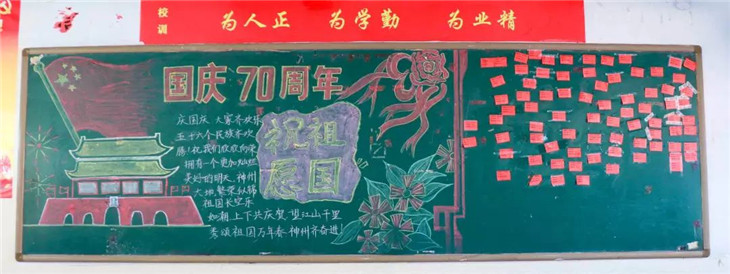 校训
为人正 为学勤 为业精
国庆70周年
庆国庆 大家齐欢乐
五十六个民族齐欢
腾!祝我们欣欣向荣
拥有个更加灿烂
美好的明天,神州
大地,繁荣纵锦
祖国长空乐
如潮,上下共庆贺,望江山千里
秀颂祖国万年春,神州齐奋进!
祝祖
愿国